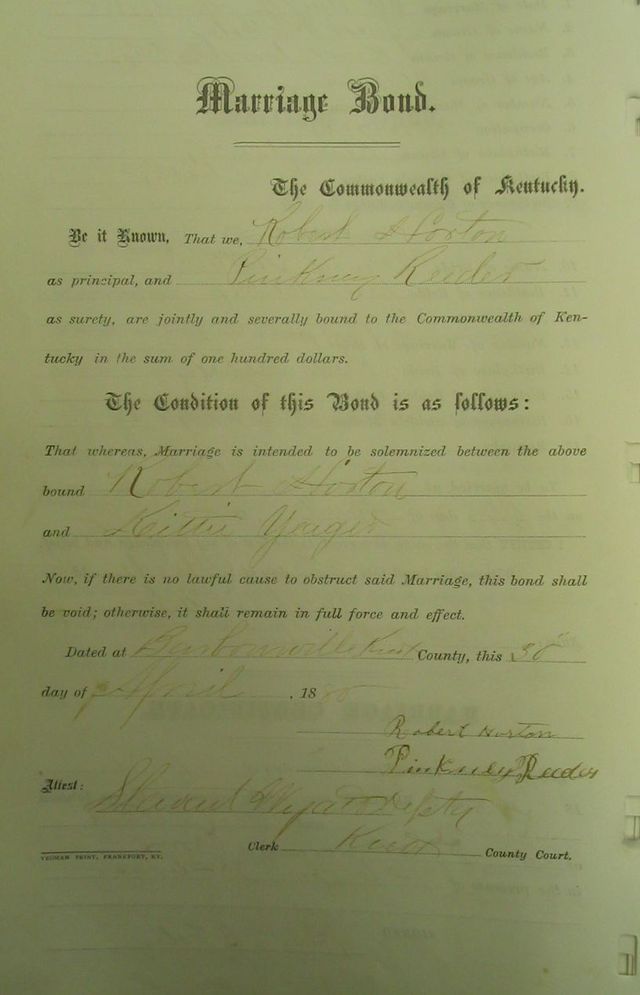 Marriage Bond.
The Commonwealth of Kentucky.
Be it Known, That we, Robert Horton
as principal, and Pinkney Reeder
as surety, are jointly and severally bound to the Commonwealth of Ken-
tucky in the sum of one hundred dollars.
The Condition of this Bond is as follows:
That whereas, Marriage is intended to be solemnized between the above
bound Robert Horton
and Kittie Yeager
Now, if there is no lawful cause to obstruct said Marriage, this bond shall
be void; otherwise, it shall remain in full force and effect.
Dated at Barbourville Knox County, this 30"
day of April, 18
Robert Horton
Pinkney Reeder
Attest: Wyatt
Clerk Knox County Court.
YEOMAN PRINT, FRANKFORT, KY.